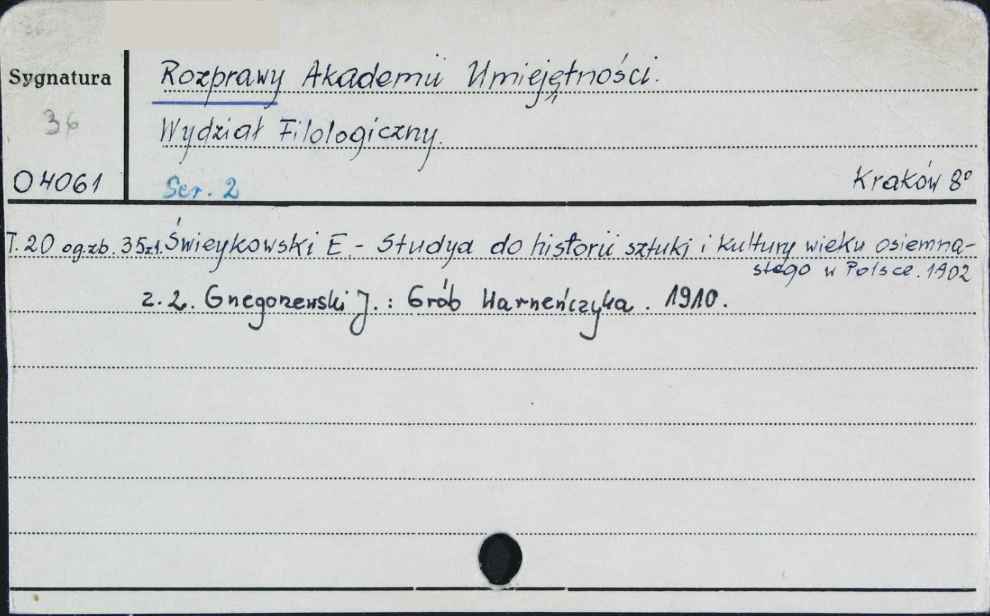 Sygnatura
Rozprawy Akademii Umiejętności.
36
Wydział Filologiczny.
O 4061
Ser. 2
Kraków 8°
T. 20 og.zb. 35 z.1. Świeykowski E. - Studya do historii sztuki i kultury wieku osiemna-
stego w Polsce. 1902
z. 2. Gnegorzewski J. : Grób Warneńczyka. 1910.